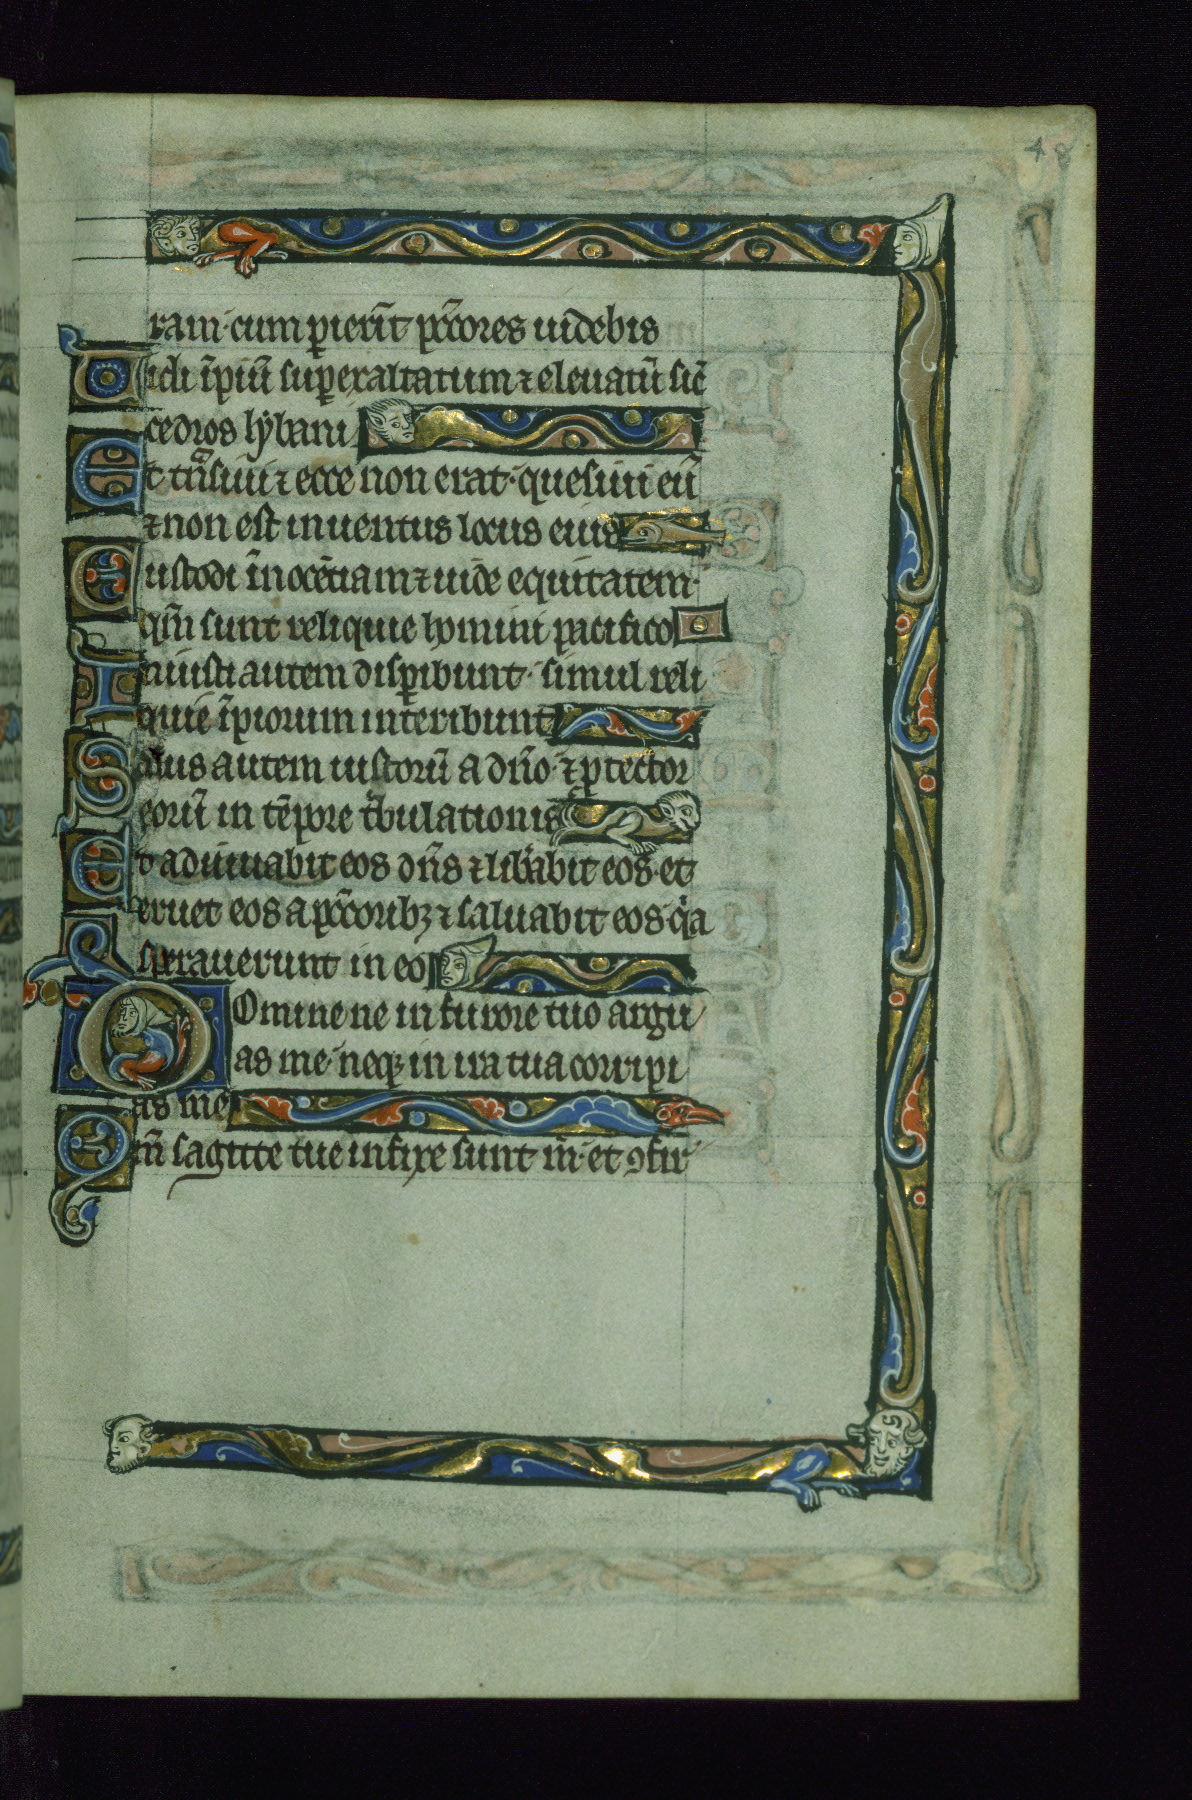 48
ram· cum p̲ierīt pc̄cores uidebis
Uidi īpiū sup̲exaltatum ⁊ eleuatū sic̄
cedros lẏbani
Et tn̄siui ⁊ ecce non erat· quesiui eū
⁊ non est inuentus locus eius
Custodi īnocētiam ⁊ uide equitatem·
qm̄ sunt reliquie homini pacifico
Iniusti autem disp̲ibunt· simul reli
quie īpiorum interibunt
Salus autem iustorū a dn̄o· ⁊ p̲tector
eorū in tēpore tͥbulationis
Et adiuuabit eos dn̄s ⁊ lib̄abit eos· et
eruet eos a pc̄corib; ⁊ saluabit eos· qͥa
sperauerunt in eo
Domine ne in furore tuo argu
as me· neq; in ira tua corripi
as me
Qm̄ sagitte tue infixe sunt m̄· et ꝯfir